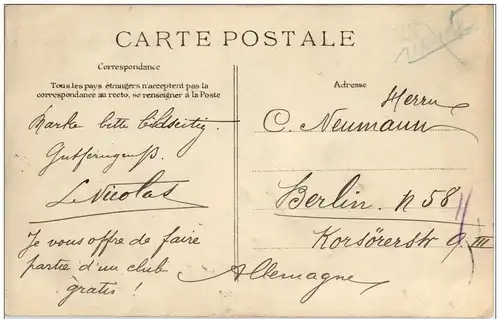 CARTE POSTALE
Correspondance
Tous les pays étrangers n'acceptent pas la
correspondance au recto, se renseigner à la Poste
Adresse
Marke bitte bildseitig.
Gutferngruß.
L. Nicolas
Je vous offre de faire
partie d'un club
gratis!
Herrn
C. Neumann
Berlin. N 58
Korsörerstr 9. III
Allemagne